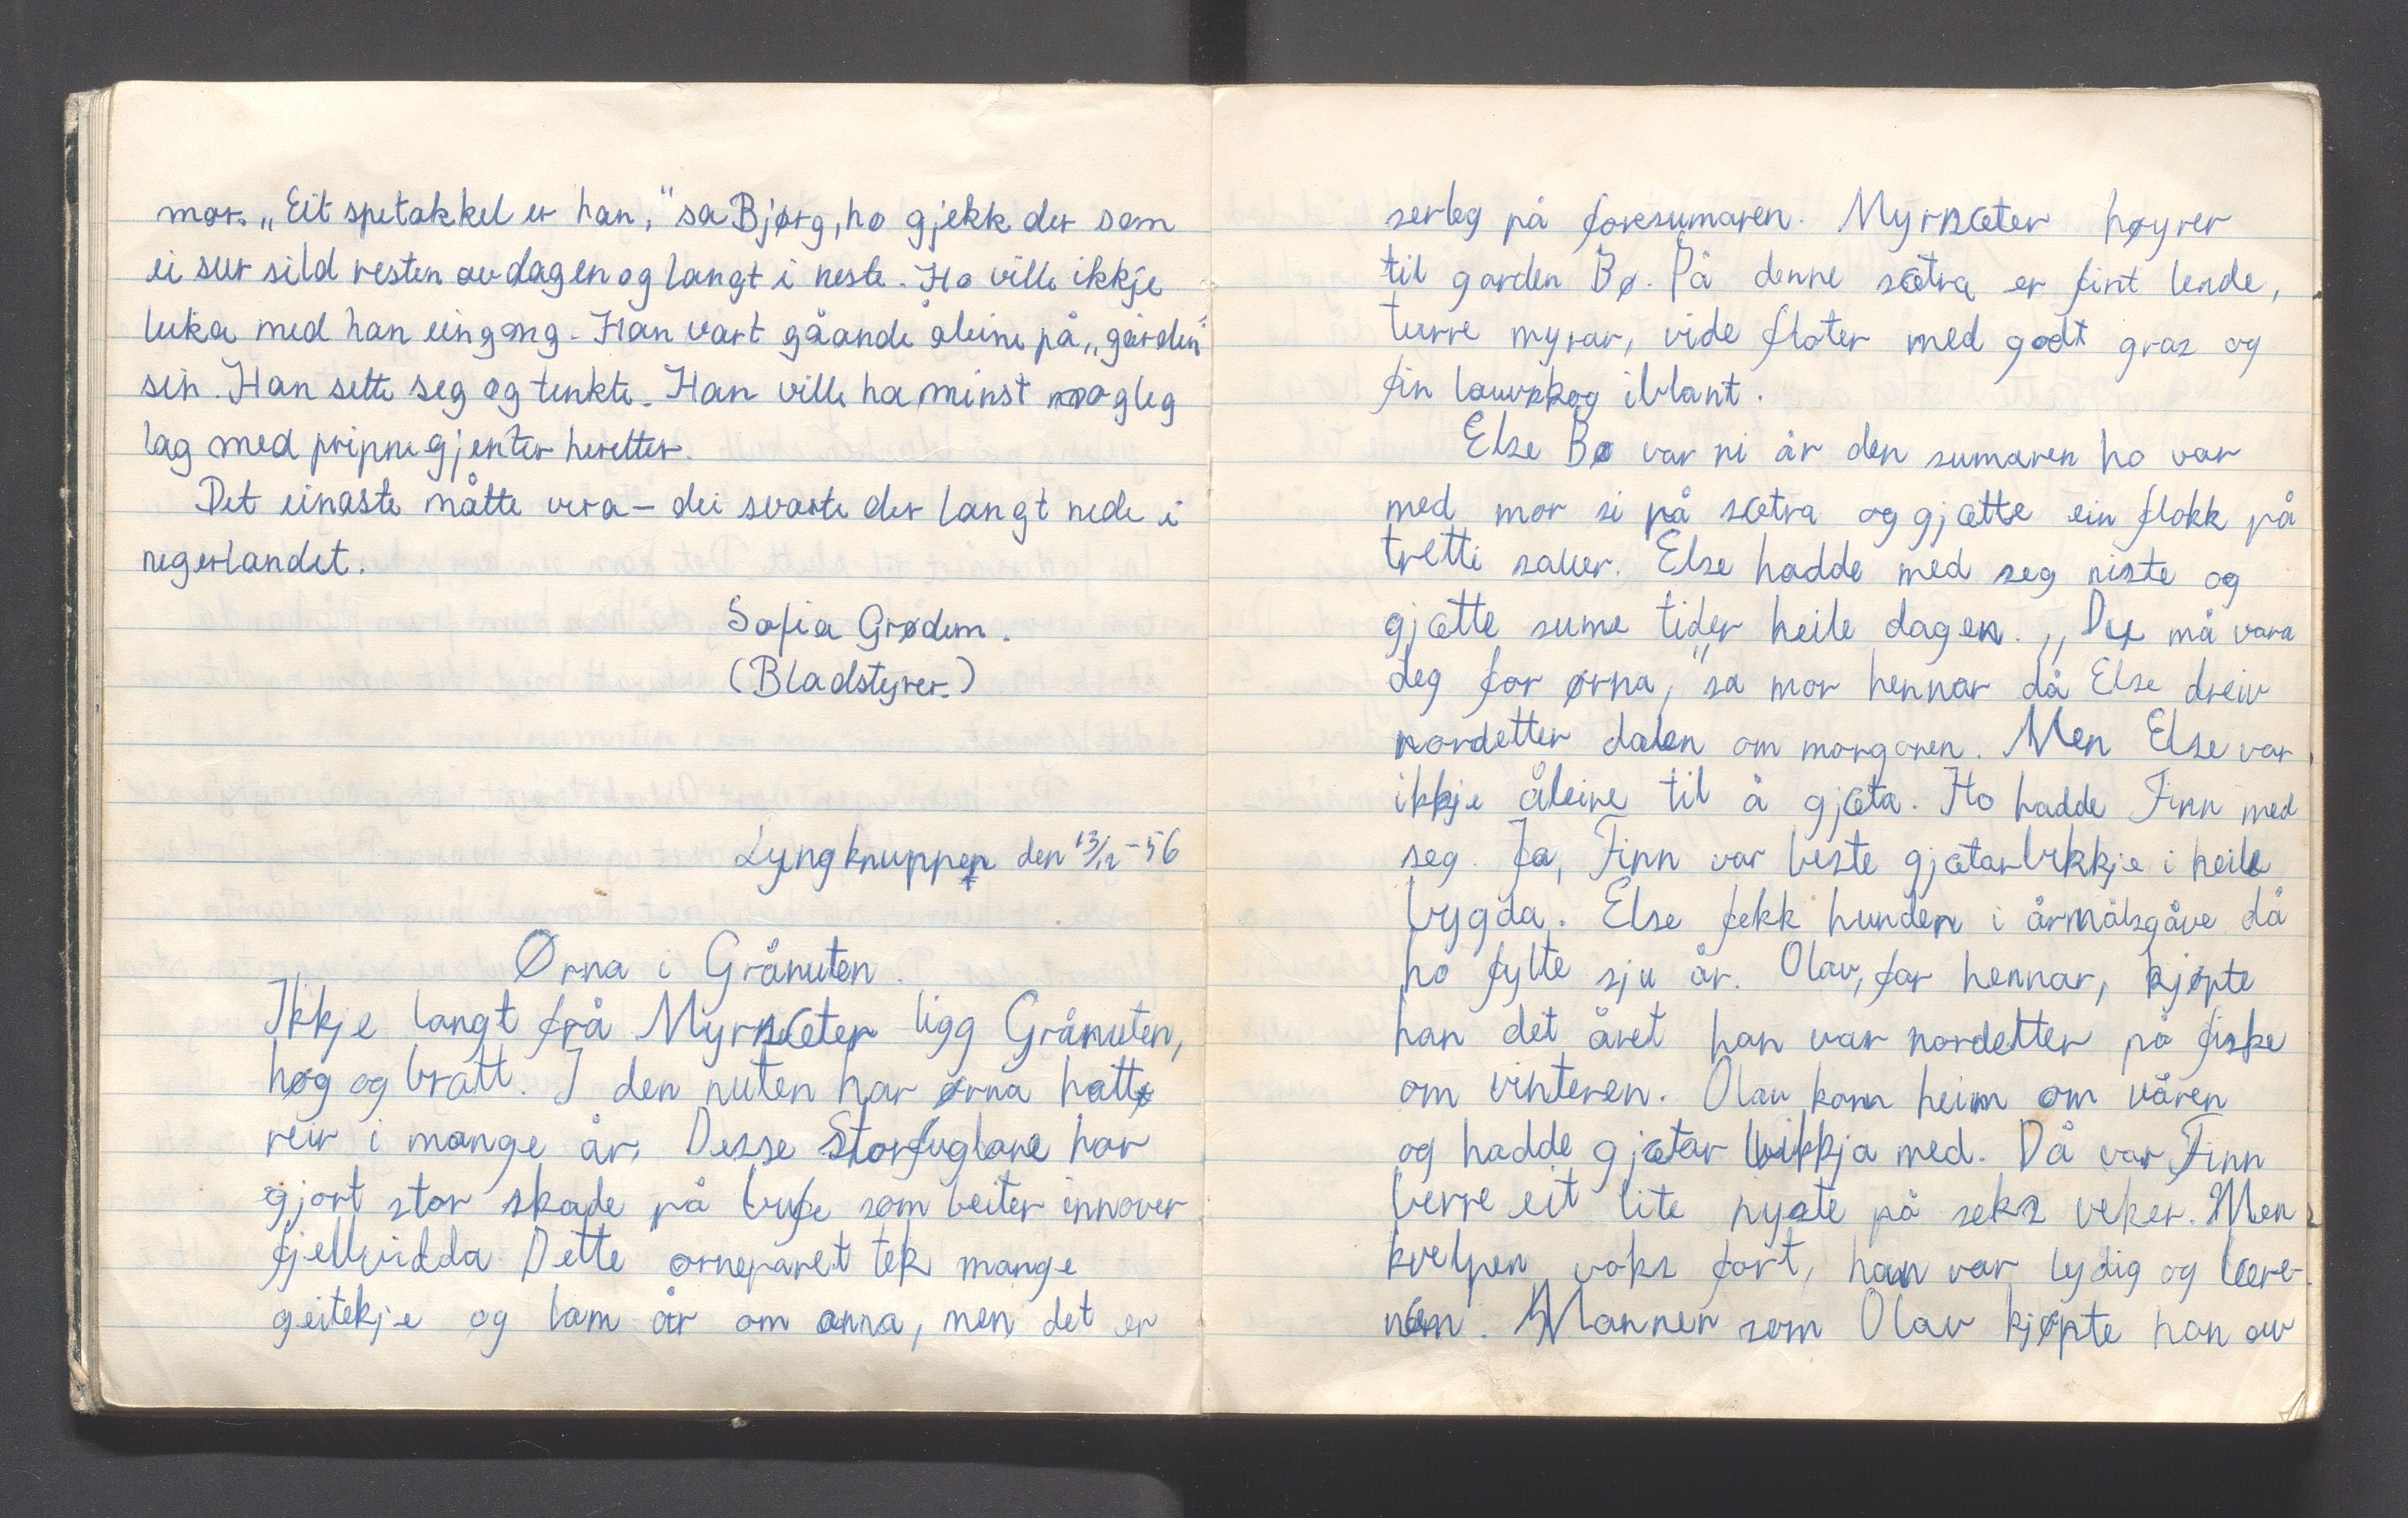 mor. „Eit spetakkel er han," sa Bjørg, ho gjekk der som
ei sur sild resten av dagen og langt i neste. Ho ville ikkje
leika med han eingong. Han vart gåande åleine på „garden"
sin. Han sette seg og tenkte. Han ville ha minst mogleg
lag med pripne gjenter heretter.
Det einaste måtte vera – dei svarte der langt nede i
negerlandet.
Sofia Grødem.
(Bladstyrer.)
Lyngknuppen den 13/12-56
Ørna i Grånuten.
Ikkje langt frå Myrsæter ligg Grånuten,
høg og bratt. I den nuten har ørna hatt
reir i mange år. Desse storfuglane har
gjort stor skade på bufe som beiter innover
fjellvidda. Dette ørneparet tek mange
geitekje og lam år om anna, men det er
serleg på forsumaren. Myrsæter høyrer
til garden Bø. På denne sætra er fint lende,
turre myrar, vide flater med godt gras og
fin lauvskog iblant.
Else Bø var ni år den sumaren ho var
med mor si på sætra og gjætte ein flokk på
tretti sauer. Else hadde med seg niste og
gjætte sume tider heile dagen. „Du må vara
deg for ørna," sa mor hennar då Else dreiv
nordetter dalen om morgonen. Men Else var
ikkje åleine til å gjæta. Ho hadde Finn med
seg. Ja, Finn var beste gjætarbikkje i heile
bygda. Else fekk hunden i årmålsgåve då
ho fylte sju år. Olav, far hennar, kjøpte
han det året han var nordetter på fiske
om vinteren. Olav kom heim om våren
og hadde gjætar bikkja med. Då var Finn
berre eit lite nyste på seks veker. Men
kvelpen voks fort, han var lydig og lære-
næm. Mannen som Olav kjøpte han av